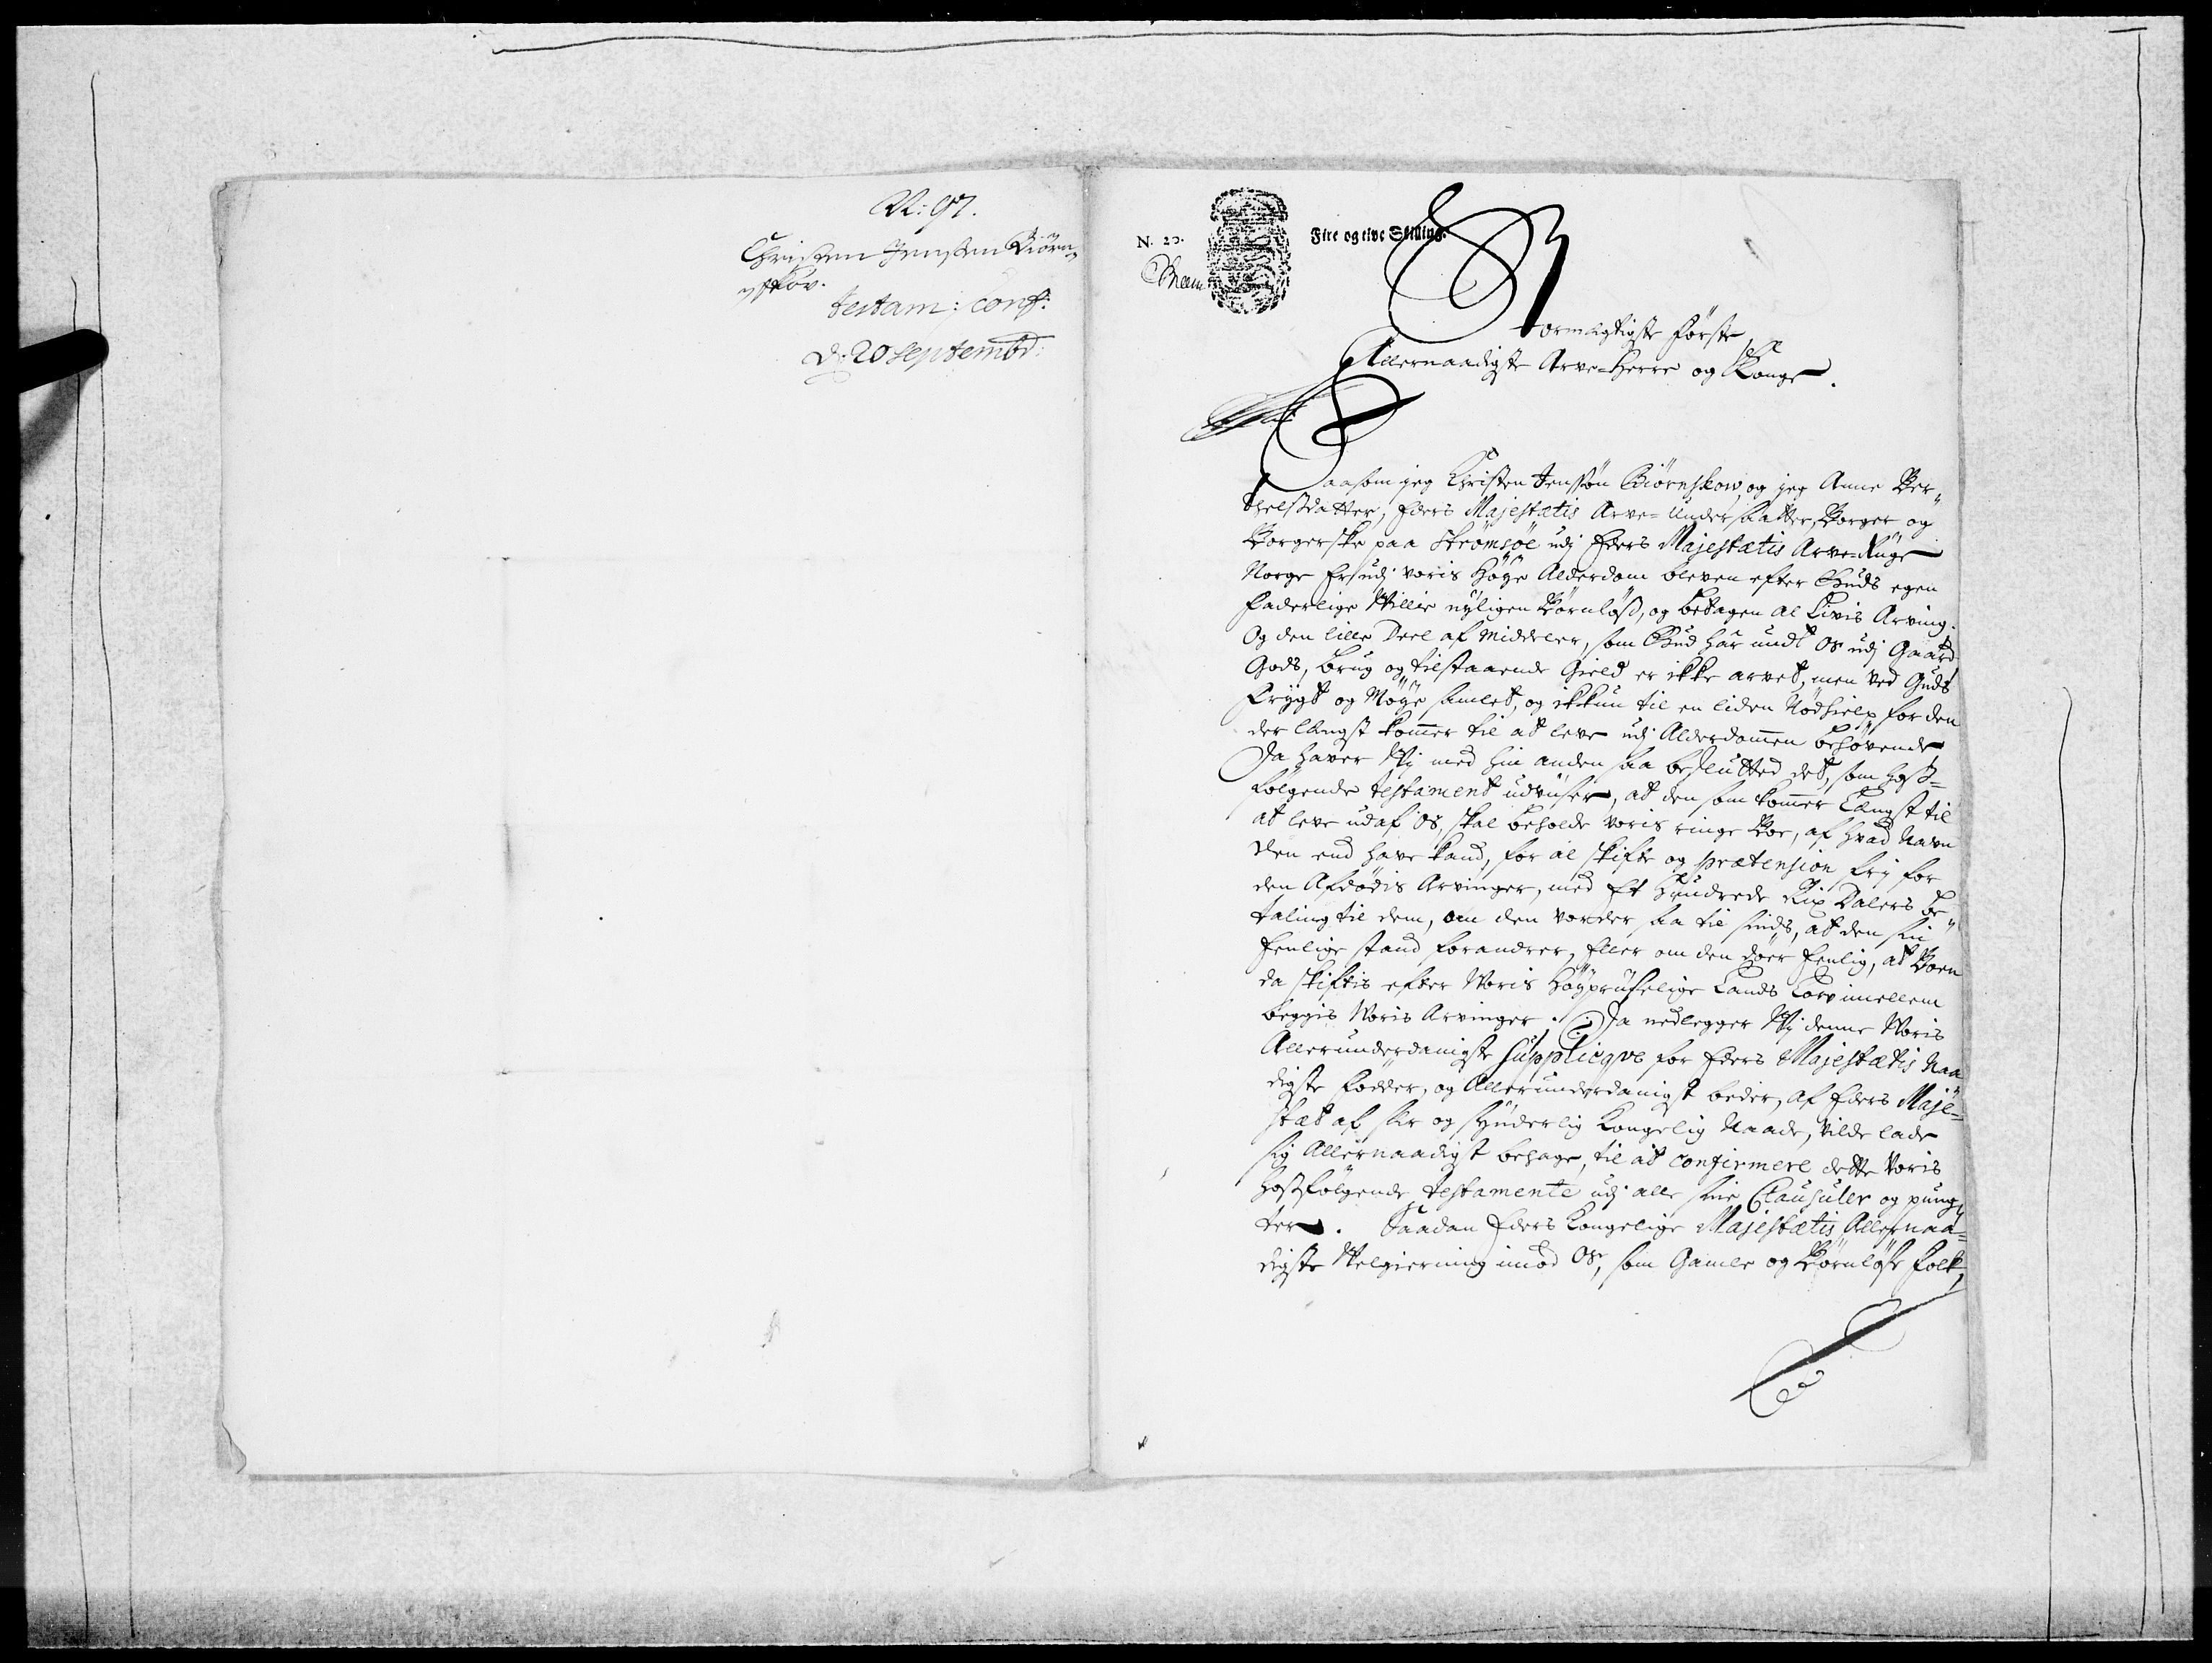 N: 97.
Christen Jensen Biørn„
„skov.
testam: conf:
d: 20 septembr:
N. 20.
Fire og tive Skilling.
Stormægtigste Første
Allernaadigste Arve-Herre og Konge.
Saasom jeg Christen Jenssøn Biørnskow, og jeg Anne Ber„
thelsdatter, Eders Majestætis Arve-undersaatter, Borger og
Borgerske paa Strømsøe udj Eders Majestætis Arve-Riige
Norge Er udj voris Høye Alderdom bleven efter Guds egen
faderlige Willie nyligen Børnløs, og betagen al Livis Arving.
Og den lille Deel af Middeler, som Gud har undt os udj Gaard
Gods, brug og tilstaaende Gield er ikke arvet, men ved Guds
Frygt og Møye samlet, og ikkun til en liden Nødhielp for den
der længst kommer til at leve udj Alderdommen behøvende
Da haver Wj med hin anden saa besluttet det, som hoß-
følgende testament udviiser, at den som kommer Længst til
at leve udaf os, skal beholde voris ringe Boe, af hvad Navn
den end have kand, for al skifte og prætension frj for
den Afdødis Arvinger, med Et Hundrede Rix Dalers be„
taling til dem, om den vorder saa til sinds, at den sin
Eenlige stand forandrer, Eller om den døer Eenlig, at Boen
da skiftis efter Woris Høypriiselige Lands Lov imellem
begge Woris Arvinger. Da nedlegger Wj denne Woris
Allerunderdanigste Supplicqve for Eders Majestætis Naa
digste Fødder, og Allerunderdanigst beder, at Eders Maje-
stæt af sær og synderlig Kongelig Naade, vilde lade
sig Allernaadigst behage, til at confirmere dette Voris
hosfølgende testamente udj alle sine Clausuler og pung„
ter. Saadan Eders Kongelige Majestætis Allernaa-
digste Velgierning imod os, som Gamle og Børnløse folk,